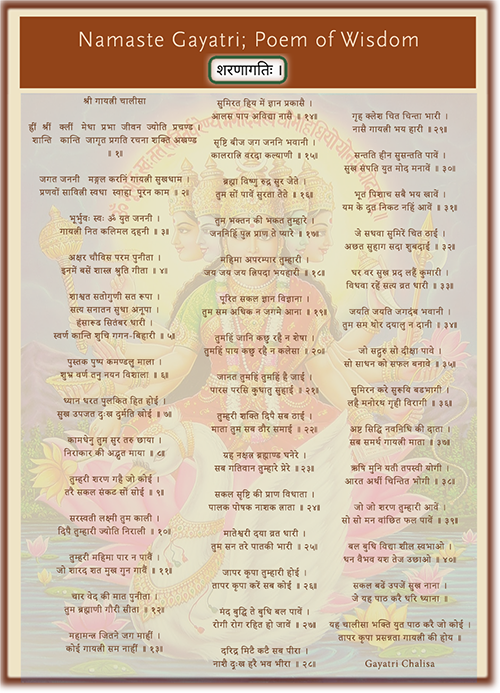 Namaste Gayatri; Poem of Wisdom
शरणागतिः ।
श्री गायत्री चालीसा
ह्रीं श्रीं क्लीं मेधा प्रभा जीवन ज्योति प्रचण्ड ।
शान्ति कान्ति जागृत प्रगति रचना शक्ति अखण्ड
॥ १॥
जगत जननी मङ्गल करनिं गायत्री सुखधाम ।
प्रणवों सावित्री स्वधा स्वाहा पूरन काम ॥ २॥
भूर्भुवः स्वः ॐ युत जननी ।
गायत्री नित कलिमल दहनी ॥ ३॥
अक्षर चौविस परम पुनीता ।
इनमें बसें शास्त्र श्रुति गीता ॥ ४॥
शाश्वत सतोगुणी सत रूपा ।
सत्य सनातन सुधा अनूपा ।
हंसारूढ सितंबर धारी ।
स्वर्ण कान्ति शुचि गगन-बिहारी ॥ ५॥
पुस्तक पुष्प कमण्डलु माला ।
शुभ्र वर्ण तनु नयन विशाला ॥ ६॥
ध्यान धरत पुलकित हित होई ।
सुख उपजत दुःख दुर्मति खोई ॥ ७॥
कामधेनु तुम सुर तरु छाया ।
निराकार की अद्भुत माया ॥ ८॥
तुम्हरी शरण गहै जो कोई ।
तरै सकल संकट सों सोई ॥ ९॥
सरस्वती लक्ष्मी तुम काली ।
दिपै तुम्हारी ज्योति निराली ॥ १०॥
तुम्हरी महिमा पार न पावैं ।
जो शारद शत मुख गुन गावैं ॥ ११॥
चार वेद की मात पुनीता ।
तुम ब्रह्माणी गौरी सीता ॥ १२॥
महामन्त्र जितने जग माहीं ।
कोई गायत्री सम नाहीं ॥ १३॥
सुमिरत हिय में ज्ञान प्रकासै ।
आलस पाप अविद्या नासै ॥ १४॥
सृष्टि बीज जग जननि भवानी ।
कालरात्रि वरदा कल्याणी ॥ १५॥
ब्रह्मा विष्णु रुद्र सुर जेते ।
तुम सों पावें सुरता तेते ॥ १६॥
तुम भक्तन की भकत तुम्हारे ।
जननिहिं पुत्र प्राण ते प्यारे ॥ १७॥
महिमा अपरम्पार तुम्हारी ।
जय जय जय त्रिपदा भयहारी ॥ १८॥
पूरित सकल ज्ञान विज्ञाना ।
तुम सम अधिक न जगमे आना ॥ १९॥
तुमहिं जानि कछु रहै न शेषा ।
तुमहिं पाय कछु रहै न कलेसा ॥ २०॥
जानत तुमहिं तुमहिं है जाई ।
पारस परसि कुधातु सुहाई ॥ २१॥
तुम्हरी शक्ति दिपै सब ठाई ।
माता तुम सब ठौर समाई ॥ २२॥
ग्रह नक्षत्र ब्रह्माण्ड घनेरे ।
सब गतिवान तुम्हारे प्रेरे ॥ २३॥
सकल सृष्टि की प्राण विधाता ।
पालक पोषक नाशक त्राता ॥ २४॥
मातेश्वरी दया व्रत धारी ।
तुम सन तरे पातकी भारी ॥ २५॥
जापर कृपा तुम्हारी होई ।
तापर कृपा करें सब कोई ॥ २६॥
मंद बुद्धि ते बुधि बल पावें ।
रोगी रोग रहित हो जावें ॥ २७॥
दरिद्र मिटै कटै सब पीरा ।
नाशै दुःख हरै भव भीरा ॥ २८॥
गृह क्लेश चित चिन्ता भारी ।
नासै गायत्री भय हारी ॥ २९॥
सन्तति हीन सुसन्तति पावें ।
सुख संपति युत मोद मनावें ॥ ३०॥
भूत पिशाच सबै भय खावें ।
यम के दूत निकट नहिं आवें ॥ ३१॥
जे सधवा सुमिरें चित ठाई ।
अछत सुहाग सदा शुबदाई ॥ ३२॥
घर वर सुख प्रद लहैं कुमारी ।
विधवा रहें सत्य व्रत धारी ॥ ३३॥
जयति जयति जगदंब भवानी ।
तुम सम थोर दयालु न दानी ॥ ३४॥
जो सद्गुरु सो दीक्षा पावे ।
सो साधन को सफल बनावे ॥ ३५॥
सुमिरन करे सुरूयि बडभागी ।
लहै मनोरथ गृही विरागी ॥ ३६॥
अष्ट सिद्धि नवनिधि की दाता ।
सब समर्थ गायत्री माता ॥ ३७॥
ऋषि मुनि यती तपस्वी योगी ।
आरत अर्थी चिन्तित भोगी ॥ ३८॥
जो जो शरण तुम्हारी आवें ।
सो सो मन वांछित फल पावें ॥ ३९॥
बल बुधि विद्या शील स्वभाओ ।
धन वैभव यश तेज उछाओ ॥ ४०॥
सकल बढें उपजें सुख नाना ।
जे यह पाठ करै धरि ध्याना ॥
यह चालीसा भक्ति युत पाठ करै जो कोई ।
तापर कृपा प्रसन्नता गायत्री की होय ॥
Gayatri Chalisa